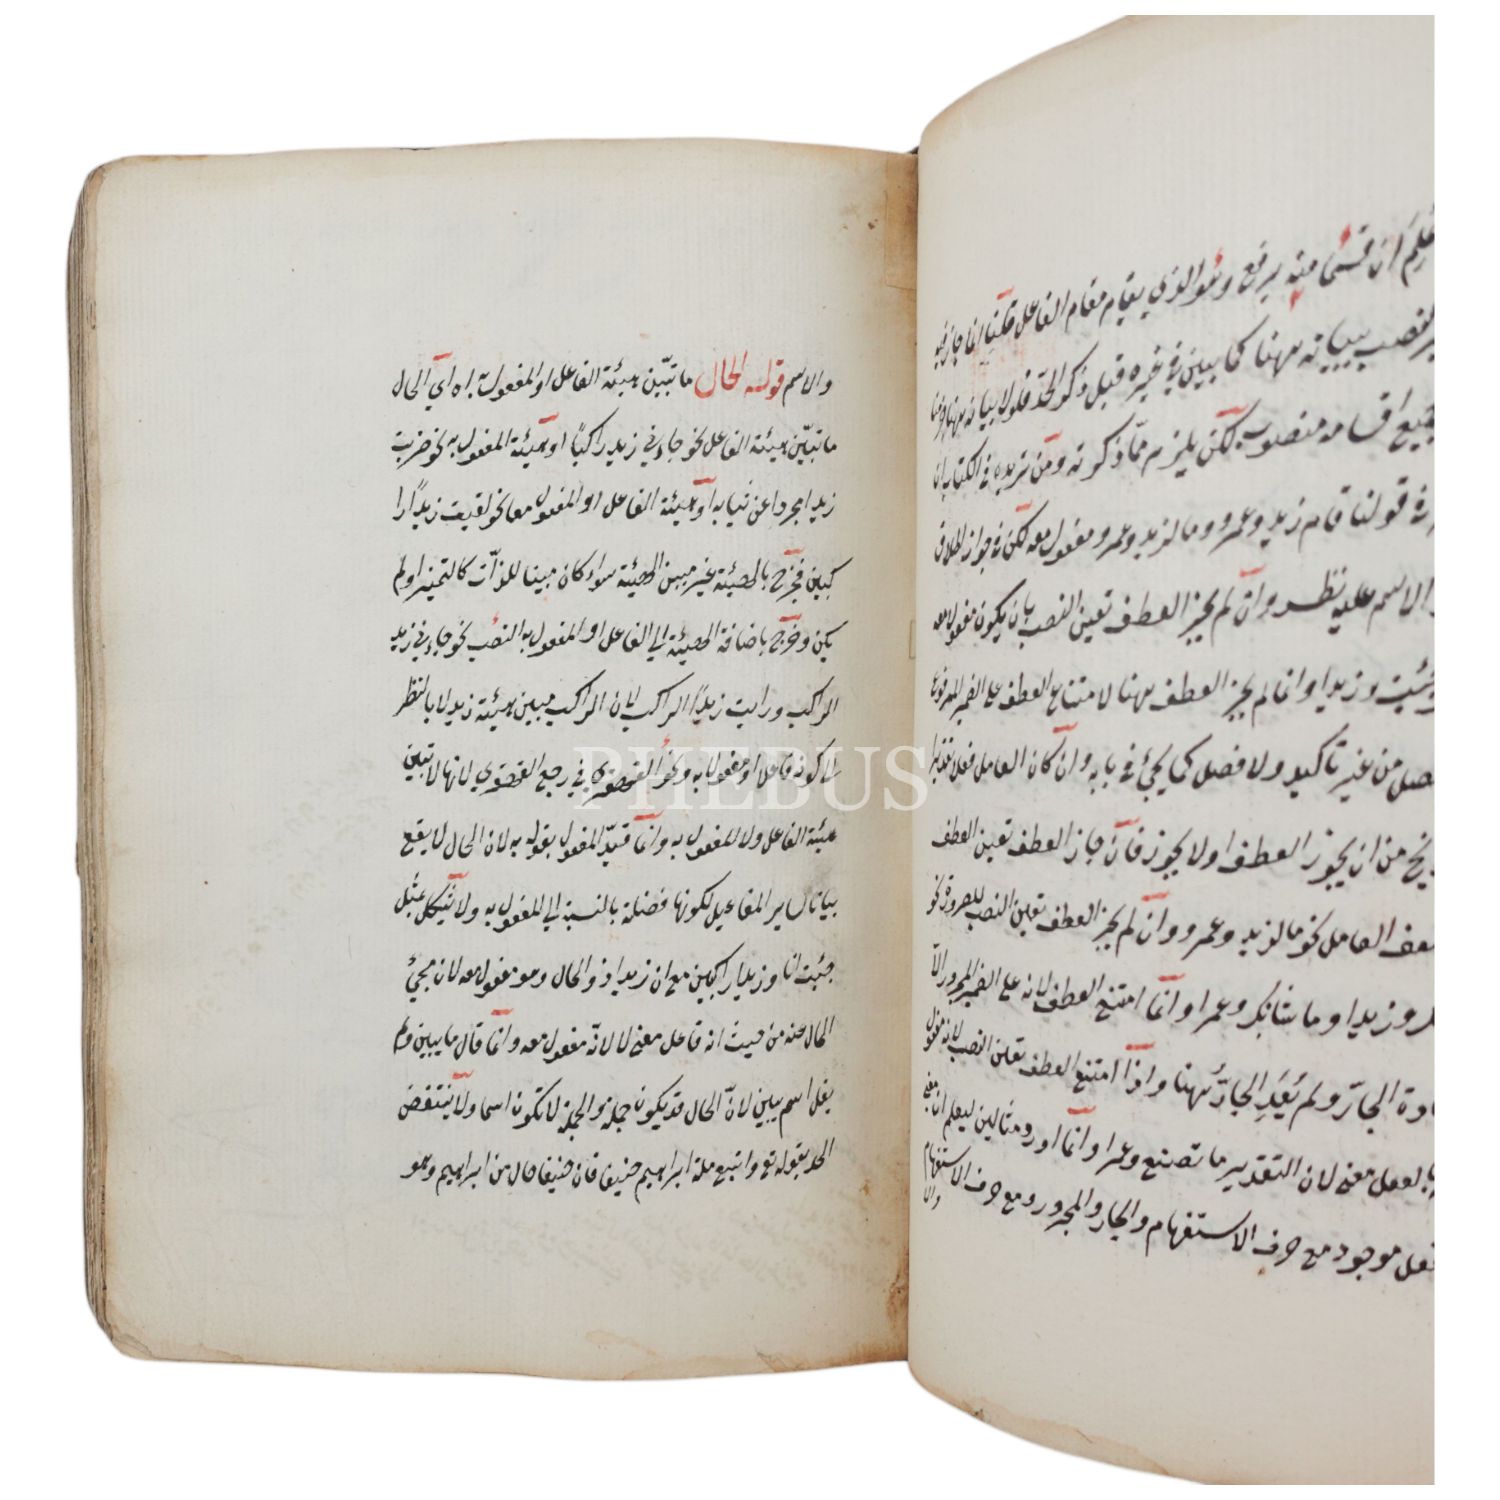 اعلم ان قسما منه يرفع وهو الذي يقام مقام الفاعل قلنا انما جاز فيه
النصب ببيانه ههنا كما يبين في غيره قبل ذكر الحد فلولا بيانه ههنا
جميع اقسامه منصوب لكن يلزم مما ذكرته ومن تريده في الكتاب ان
في قولنا قام زيد وعمرو وما لزيد وعمرو مفعول معه لكن في جواز اطلاق
الاسم عليه نظر وان لم يجز العطف تعين النصب بان يكون مفعول معه
جئت وزيدا وانما لم يجز العطف ههنا لامتناع العطف على الضمير المرفوع
المتصل من غير تاكيد ولا فصل كما يجئ في بابه وان كان العامل فعلا
من ان يجوز العطف او لا يجوز فان جاز العطف تعين العطف
لضعف العامل نحو ما لزيد وعمرو وان لم يجز العطف تعين النصب للضرورة نحو
لك وزيدا وما شانك وعمرا وانما امتنع العطف لانه على الضمير المجرور الا
باعادة الجار ولم يُعَدِ الجارّ ههنا واذا امتنع العطف تعين النصب لانه مفعول
بالفعل معنى لان التقدير ما تصنع وعمرا وانما اورد مثالين ليعلم ان معنى
الفعل موجود مع حرف الاستفهام والجار والمجرور ومع حرف الاستفهام
والا
والاسم قوله الحال ما تبيّن هيئة الفاعل او المفعول به اه اي الحال
ما تبيّن هيئة الفاعل نحو جاءني زيد راكبًا او هيئة المفعول به نحو ضربت
زيدا مجردا عن ثيابه او هيئة الفاعل او المفعول معا نحو لقيت زيدًا را
كبين فخرج بالهيئة غير مبين الهيئة سواء كان مبينا للذات كالتميز او لم
يكن وخرج باضافة الهيئة الى الفاعل او المفعول به النصب نحو جاءني زيد
الراكب ورايت زيدًا الراكب لان الراكب مبين هيئة زيد لا بالنظر
الى كونه فاعلا او مفعولا به ونحو القهقرى في رجع القهقرى لانها لا تبين
هيئة الفاعل ولا المفعول به وانما قيد المفعول بقوله به لان الحال لا يقع
بيانا لساير المفاعيل لكونها فضلة بالنسبة الى المفعول به ولا يشكل بمثل
جئت انا وزيدا راكبين مع ان زيدا ذو الحال وهو مفعول معه لان مجئ
الحال عنه من حيث انه فاعل معنى لا لانّه مفعول معه وانما قال ما يبين ولم
يقل اسم يبين لانّ الحال قد يكون جملة والجملة لا تكون اسما ولا ينتقض
الحد بقوله تع واتبع ملة ابراهيم حنيفا فان حنيفا حال من ابراهيم وهو
PHEBUS